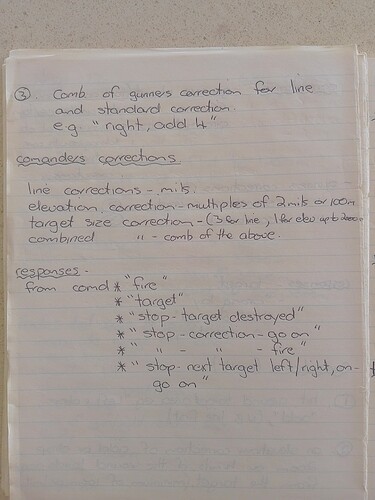 ③ Comb. of gunners correction for line
and standard correction
e.g "right, add ½"
comanders corrections
line corrections - mils.
elevation correction - multiples of 2mils or 100m
target size correction - (3 for line, 1 for elev up to
combined " - comb of the above.
responses -
from comd * "fire"
* "target"
* "stop - target destroyed"
* "stop - correction - go on"
* " - " - fire"
* "stop - next target left/right, on -
go on"